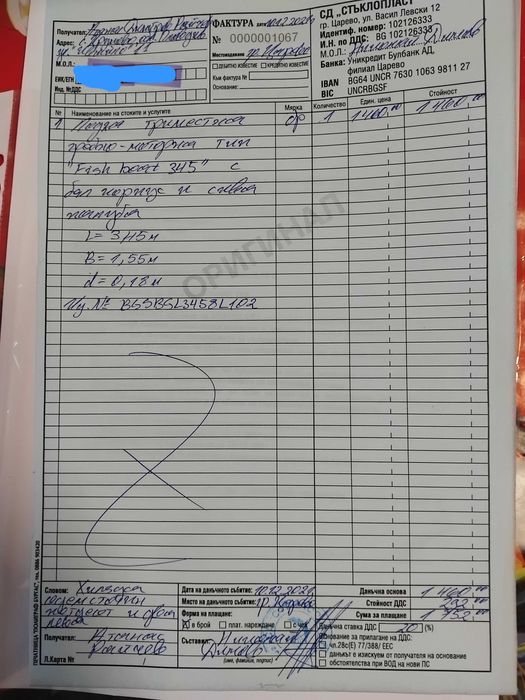 ФАКТУРА
№ 0000001067
СД „СТЪКЛОПЛАСТ"
гр. Царево, ул. Васил Левски 12
Идентиф. номер: 102126333
И.Н. по ДДС: BG 102126333
М.О.Л.:
Банка: Уникредит Булбанк АД,
филиал Царево
IBAN BG64 UNCR 7630 1063 9811 27
BIC UNCRBGSF
Получател:
Адрес:
М.О.Л.
ЕИК/ЕГН
Инд. №ДДС
ДЕБИТНО ИЗВЕСТИЕ КРЕДИТНО ИЗВЕСТИЕ
Към фактура №
Основание:
№ Наименование на стоките и услугите Мярка Количество Един. цена Стойност
1 Лодка триместна бр 1 1460,00 1460,00
гребно-моторна тип
"Fish boat 345" с
бял корпус и сива
палуба
L = 3,45 м
B = 1,55 м
d = 0,18 м
Ид. №
ОРИГИНАЛ
Словом: Хиляда
седемстотин
петдесет и два
лева
Дата на данъчното събитие:
Място на данъчното събитие: гр. Царево
Форма на плащане:
x в брой плат. нареждане с чек
Данъчна основа 1 460,00
Стойност ДДС 292,00
Сума за плащане 1 752,00
Данъчна ставка ДДС 20 (%)
Основание за прилагане на ДДС:
чл.28с(Е) 77/388/ ЕЕС
данъкът е изискуем от получателя
обстоятелства при ВОД на нови ПС
Получател: Атанас
Райчев
Л.Карта №
Съставил:
(име, фамилия, подпис)